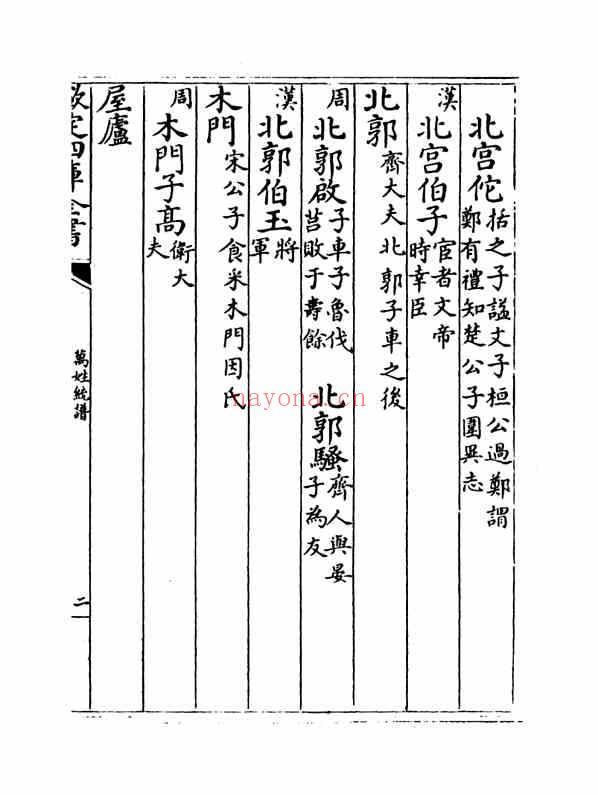 北宫佗括之子諡文子桓公過鄭謂
鄭有禮知楚公子圍異志
漢北宫伯子宦者文帝
時幸臣
北郭齊大夫北郭子車之後
周北郭啟子車子魯伐
莒敗于夀餘
北郭騷齊人與晏
子為友
漢北郭伯玉將
軍
木門宋公子食采木門因氏
周木門子髙衛大
夫
屋廬
欽定四庫全書
萬姓統譜
二
nayona.cn